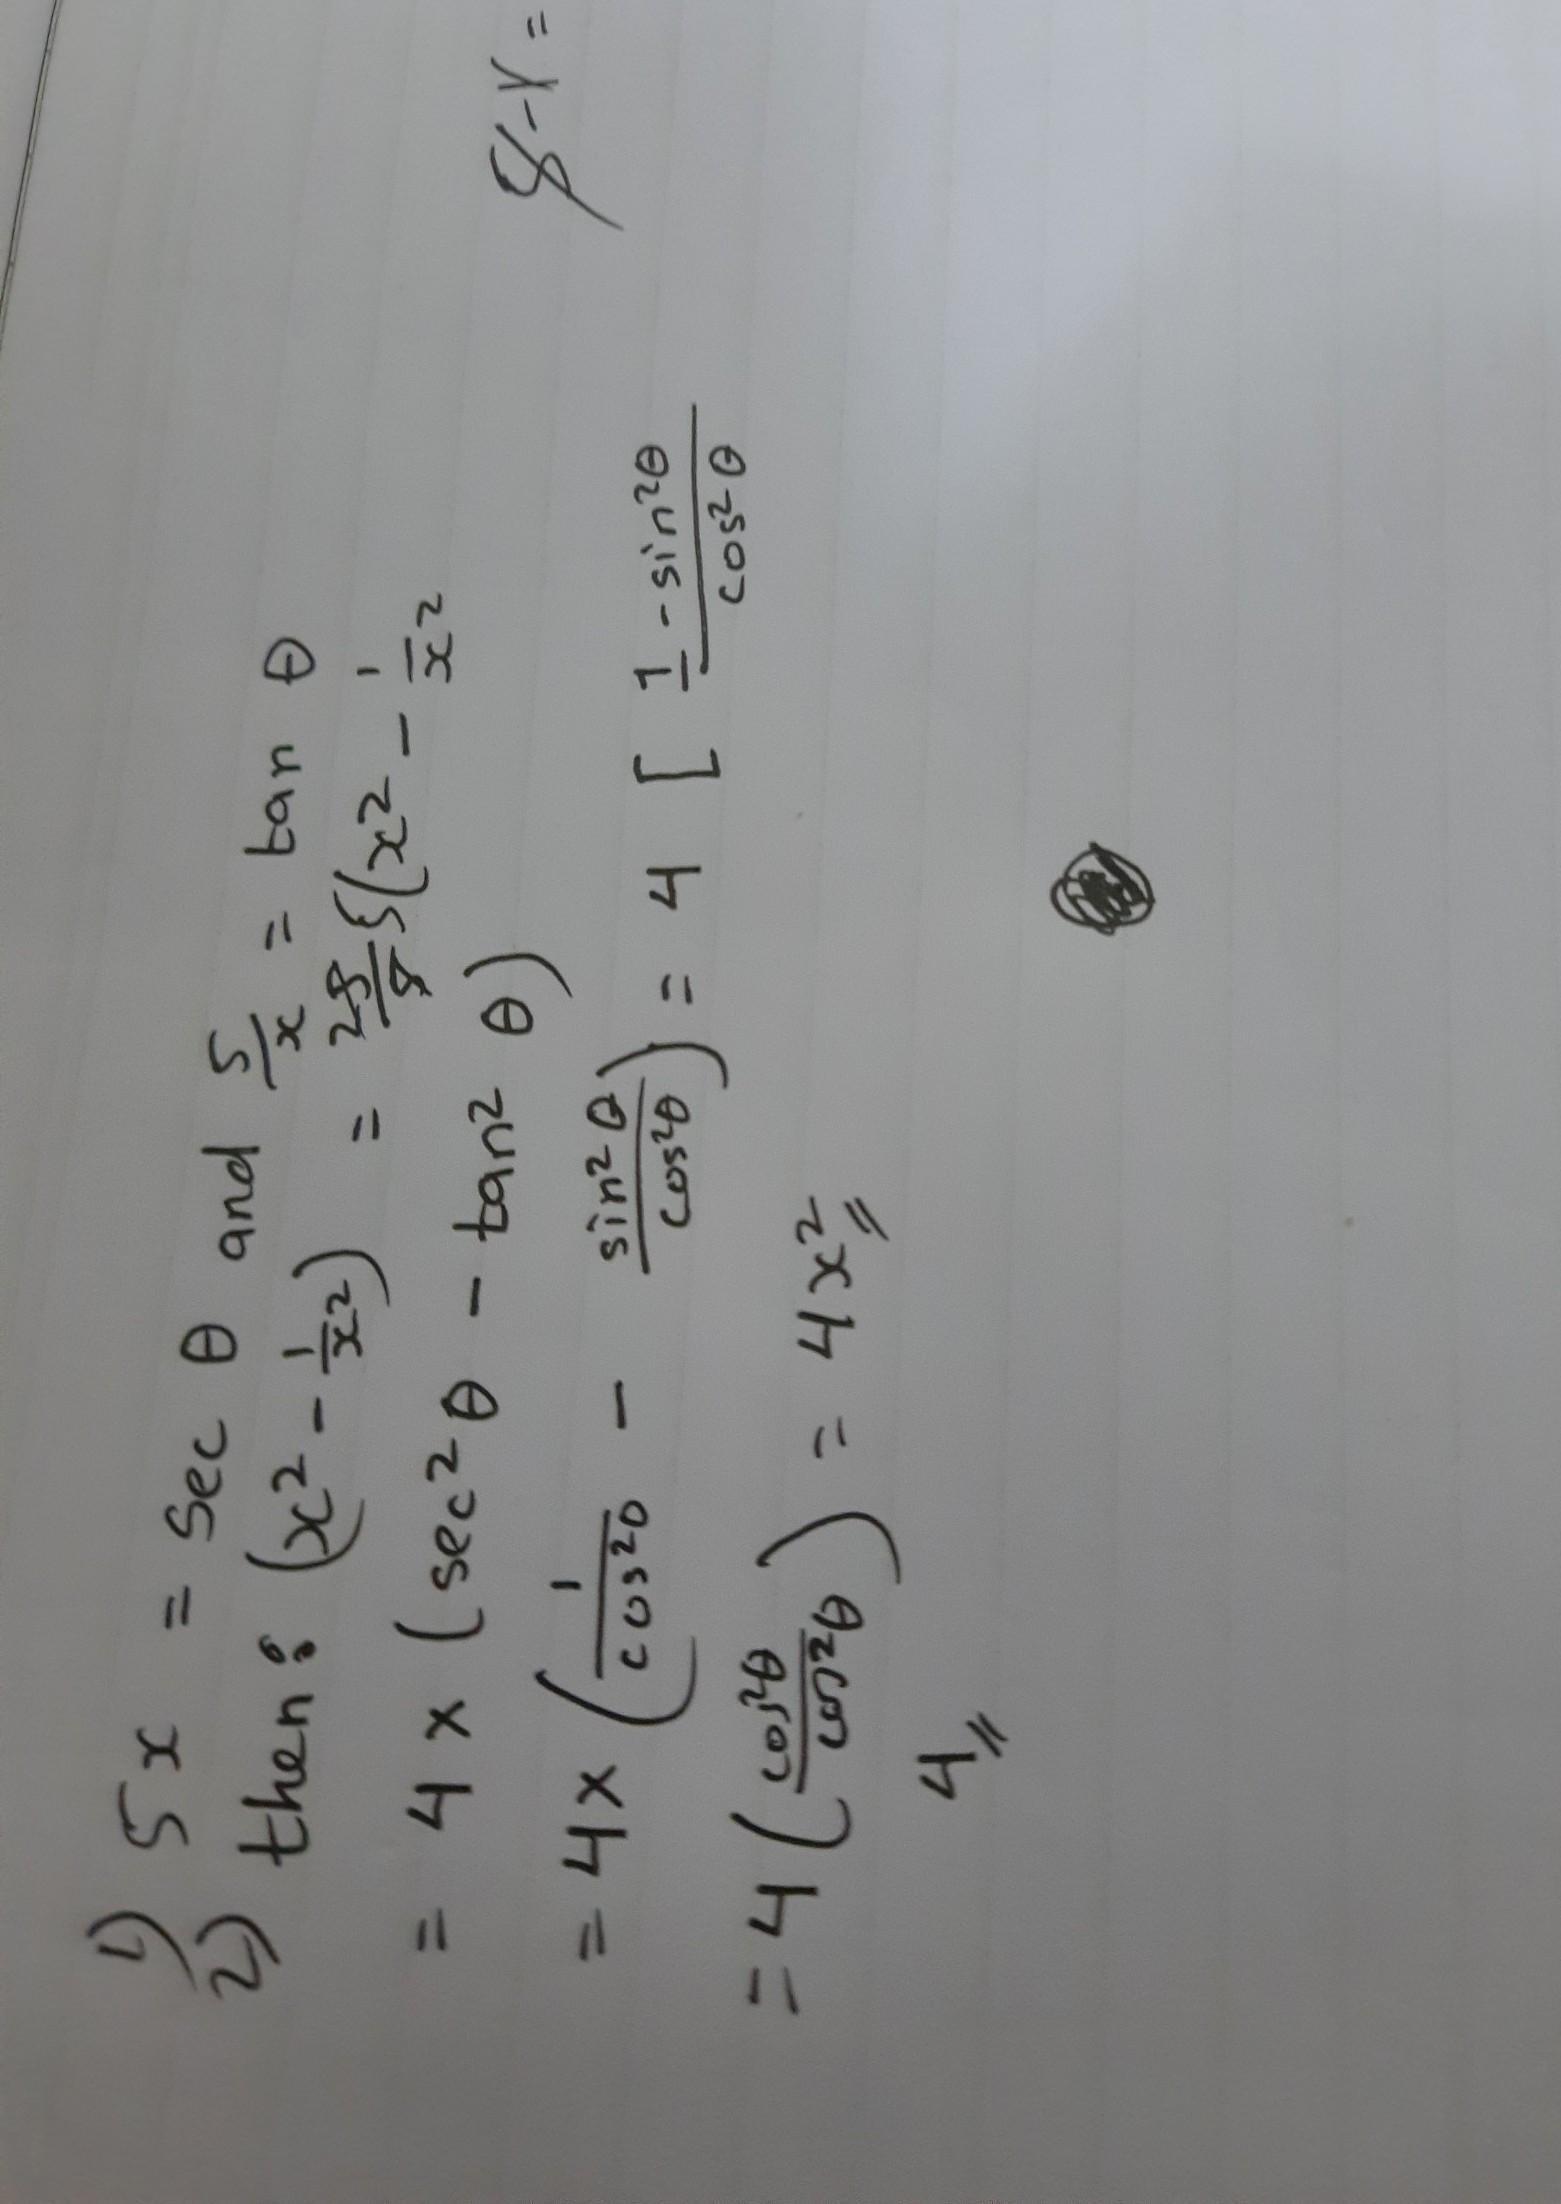 1) 5x = sec θ and 5/x = tan θ
2) then: (x² - 1/x²) = 25/5 (x² - 1/x²
= 4 × (sec² θ - tan² θ)
= 4 × (1/cos²θ - sin² θ/cos²θ) = 4 [ 1 - sin²θ/cos² θ
= 4 (cos²θ/cos²θ) = 4x²
4